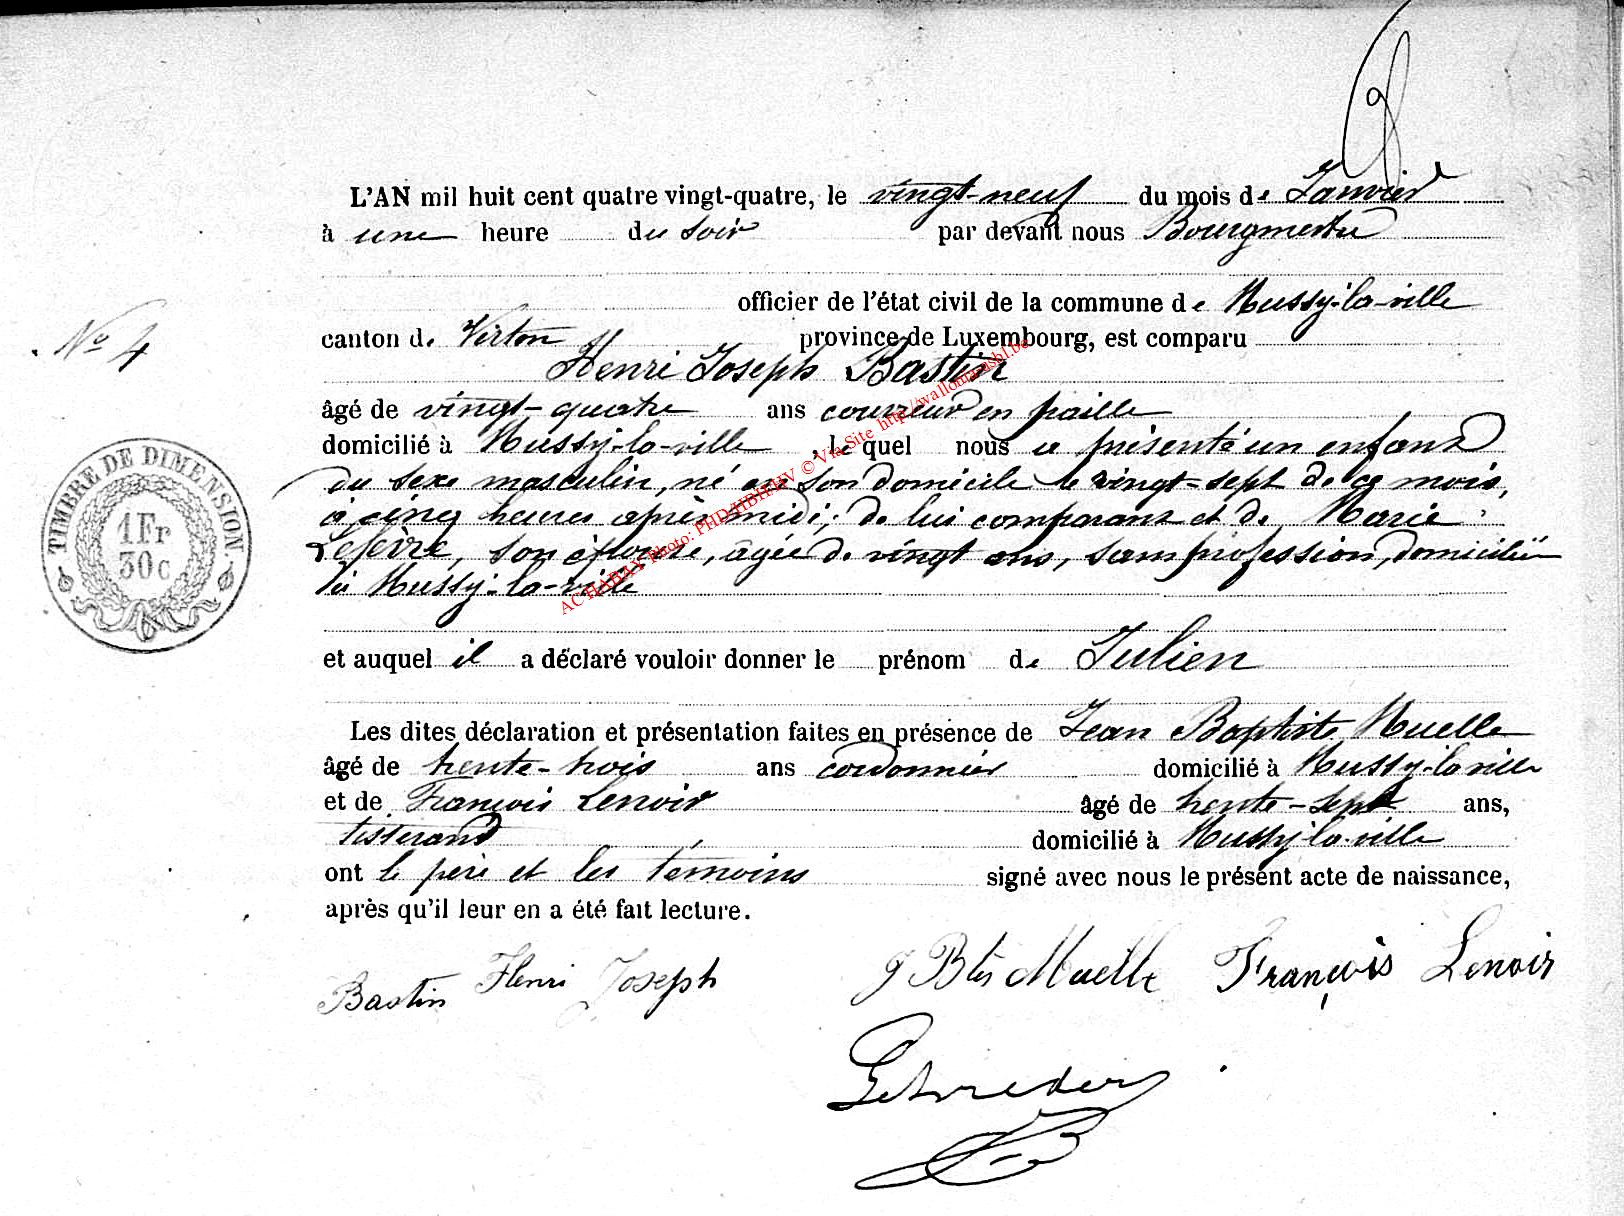 L'AN mil huit cent quatre vingt-quatre, le vingt-neuf du mois de Janvier
à une heure du soir par devant nous Bourgmestre
officier de l'état civil de la commune de Mussy-la-ville
canton de Virton province de Luxembourg, est comparu
Nº 4
Henri Joseph Bastin
âgé de vingt-quatre ans couvreur en paille
domicilié à Mussy-la-ville, lequel nous a présenté un enfant
du sexe masculin, né en son domicile le vingt-sept de ce mois,
à cinq heures après midi, de lui comparant et de Marie
Lefevre, son épouse, agée de vingt ans, sans profession, domiciliée
à Mussy-la-ville
TIMBRE DE DIMENSION.
1 Fr
30 c
et auquel il a déclaré vouloir donner le prénom de Julien
Les dites déclaration et présentation faites en présence de Jean Baptiste Muelle
âgé de trente-trois ans cordonnier domicilié à Mussy-la-ville
et de François Lenoir âgé de trente-sept ans,
tisserand domicilié à Mussy-la-ville
ont le père et les témoins signé avec nous le présent acte de naissance,
après qu'il leur en a été fait lecture.
Bastin Henri Joseph J Btes Muelle François Lenoir
ACHABAY Photo: PHD/HBH/HV © Via Site http://wallonia-asbl.be